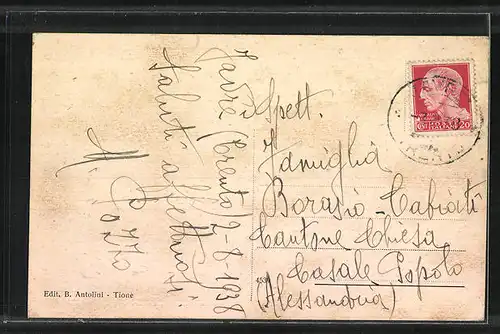 Javrè (Trento) 2-8-1938
Saluti affettuosi
M. Pozzo
Spett.
Famiglia
Borasio-Cabiati
Cantone Chiesa
Casale Popolo
(Alessandria)
Edit. B. Antolini - Tione